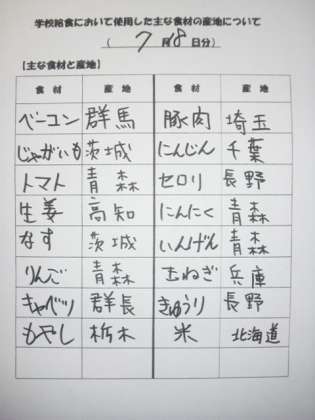 学校給食において使用した主な食材の産地について
( 7月18日分)
【主な食材と産地】
食材 産地 食材 産地
ベーコン 群馬 豚肉 埼玉
じゃがいも 茨城 にんじん 千葉
トマト 青森 セロリ 長野
生姜 高知 にんにく 青森
なす 茨城 いんげん 青森
りんご 青森 玉ねぎ 兵庫
キャベツ 群長 きゅうり 長野
もやし 栃木 米 北海道